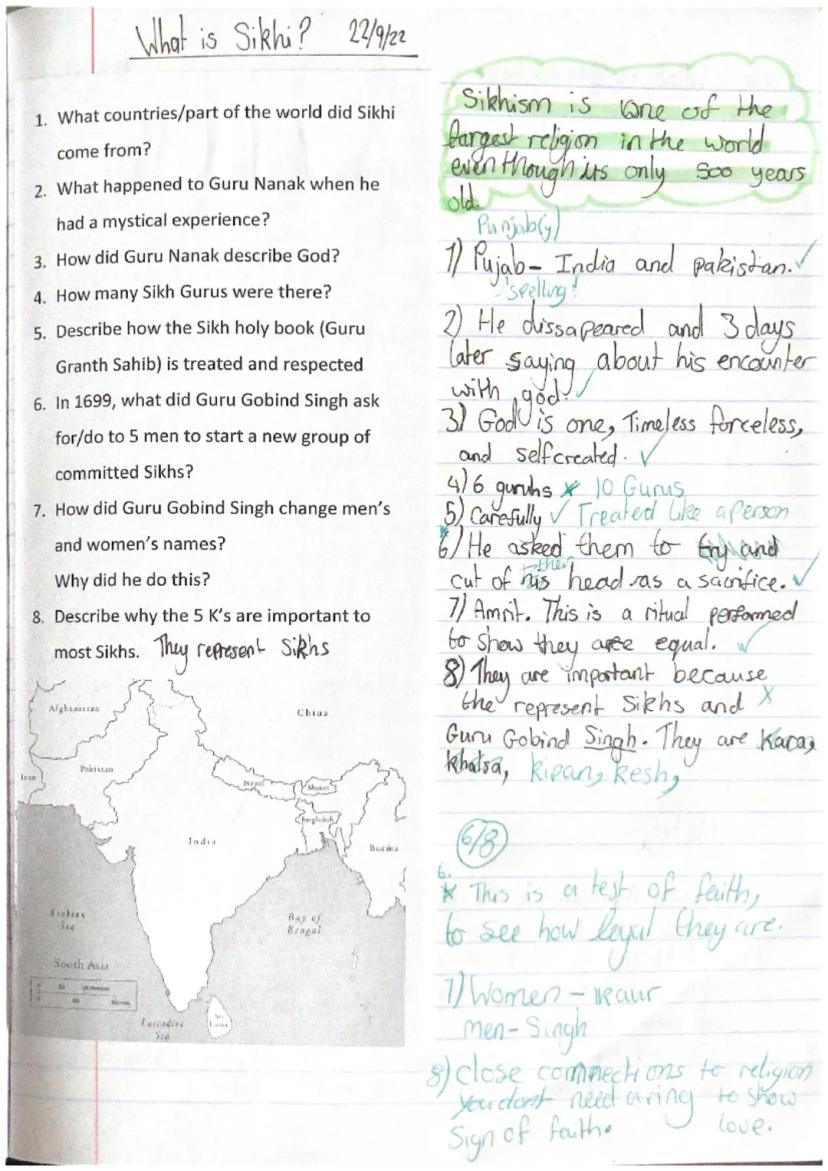 What is Sikhi? 22/9/22
1. What countries/part of the world did Sikhi
come from?
2. What happened to Guru Nanak when he
had a mystical experience?
3. How did Guru Nanak describe God?
4. How many Sikh Gurus were there?
5. Describe how the Sikh holy book (Guru
Granth Sahib) is treated and respected
6. In 1699, what did Guru Gobind Singh ask
for/do to 5 men to start a new group of
committed Sikhs?
7. How did Guru Gobind Singh change men's
and women's names?
Why did he do this?
8. Describe why the 5 K's are important to
most Sikhs. They represent Sikhs
Afghanistan
China
Iran
Pakistan
Nepal
Bhutan
Bangladesh
India
Burma
Arabian
Sea
Bay of
Bengal
South Asia
Laccadive
Sea
Sri
Lanka
Sikhism is one of the
largest religion in the world
even though its only 500 years
old.
Punjab(y)
1) Pujab- India and pakistan. ✓
spelling!
2) He dissapeared and 3 days
later saying about his encounter
with god. ✓
3) God is one, Timeless forceless,
and selfcreated. ✓
4) 6 guruhs x 10 Gurus
5) Carefully ✓ Treated like a person
*
6) He asked them to try and
their
cut of his head as a sacrifice. ✓
7) Amrit. This is a ritual performed
to show they are equal. ✓
8) They are important because
the represent Sikhs and x
Guru Gobind Singh. They are Kara,
khalsa, kipan, kesh,
6/8
6.
* This is a test of faith,
to see how loyal they are.
7) Women - kaur
men - Singh
8) close connections to religion
you dont need a ring to show
Sign of faith. love.